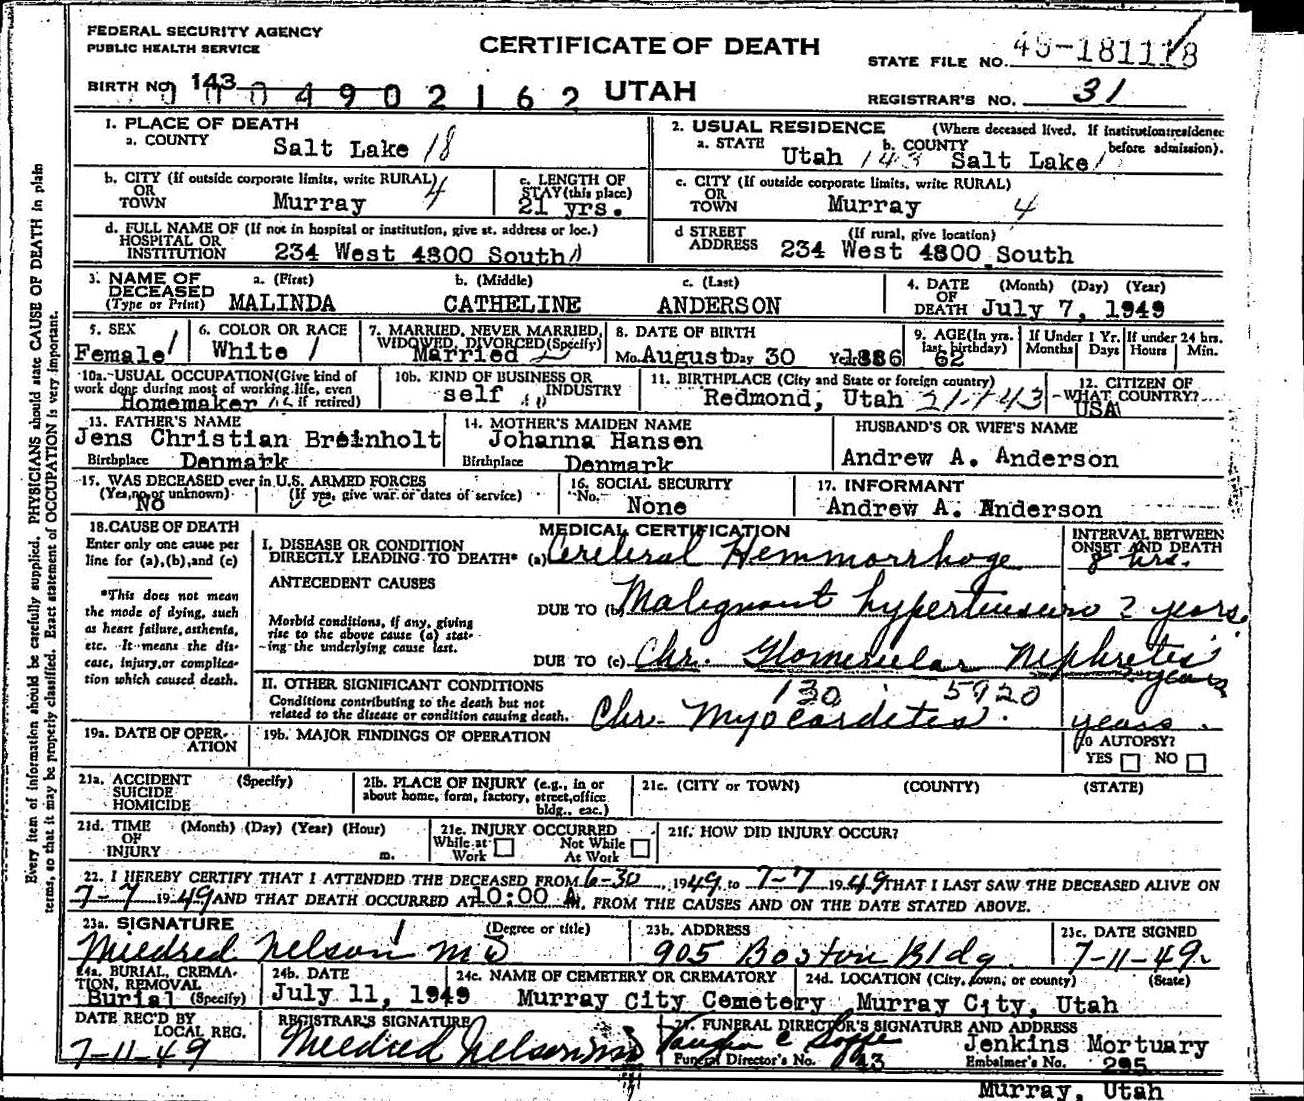 FEDERAL SECURITY AGENCY
PUBLIC HEALTH SERVICE
CERTIFICATE OF DEATH
UTAH
STATE FILE NO. 49-181118
BIRTH NO. 143
0 0 0 4 9 0 2 1 6 2
REGISTRAR'S NO. 31
1. PLACE OF DEATH
a. COUNTY Salt Lake 18
2. USUAL RESIDENCE (Where deceased lived. If institution: residence before admission).
a. STATE Utah 143 b. COUNTY Salt Lake
b. CITY (If outside corporate limits, write RURAL) OR TOWN Murray 4
c. LENGTH OF STAY (this place) 21 yrs.
c. CITY (If outside corporate limits, write RURAL) OR TOWN Murray 4
d. FULL NAME OF (If not in hospital or institution, give st. address or loc.) HOSPITAL OR INSTITUTION 234 West 4800 South
d STREET ADDRESS (If rural, give location) 234 West 4800 South
3. NAME OF DECEASED (Type or Print) a. (First) MALINDA b. (Middle) CATHELINE c. (Last) ANDERSON
4. DATE OF DEATH (Month) (Day) (Year) July 7, 1949
5. SEX Female 1
6. COLOR OR RACE White 1
7. MARRIED, NEVER MARRIED, WIDOWED, DIVORCED (Specify) Married 2
8. DATE OF BIRTH Mo. August Day 30 Yr. 1886
9. AGE (In yrs. last birthday) 62
If Under 1 Yr. Months Days
If under 24 hrs. Hours Min.
10a. USUAL OCCUPATION (Give kind of work done during most of working life, even if retired) Homemaker
10b. KIND OF BUSINESS OR INDUSTRY self
11. BIRTHPLACE (City and State or foreign country) Redmond, Utah 21-143
12. CITIZEN OF WHAT COUNTRY? USA
13. FATHER'S NAME Jens Christian Breinholt
Birthplace Denmark
14. MOTHER'S MAIDEN NAME Johanna Hansen
Birthplace Denmark
HUSBAND'S OR WIFE'S NAME
Andrew A. Anderson
15. WAS DECEASED ever in U.S. ARMED FORCES
(Yes, no or unknown) No (If yes, give war or dates of service)
16. SOCIAL SECURITY No. None
17. INFORMANT Andrew A. Anderson
18. CAUSE OF DEATH
Enter only one cause per line for (a), (b), and (c)
*This does not mean the mode of dying, such as heart failure, asthenia, etc. It means the disease, injury, or complication which caused death.
MEDICAL CERTIFICATION
INTERVAL BETWEEN ONSET AND DEATH
I. DISEASE OR CONDITION DIRECTLY LEADING TO DEATH* (a) Cerebral Hemmorrhoge 8 hrs.
ANTECEDENT CAUSES
Morbid conditions, if any, giving rise to the above cause (a) stating the underlying cause last.
DUE TO (b) Malignant hypertension 2 years.
DUE TO (c) Chr. Glomerular Nephretes years
II. OTHER SIGNIFICANT CONDITIONS
Conditions contributing to the death but not related to the disease or condition causing death.
130 5920
Chr. Myocardites. years.
19a. DATE OF OPERATION
19b. MAJOR FINDINGS OF OPERATION
20 AUTOPSY?
YES NO
21a. ACCIDENT SUICIDE HOMICIDE (Specify)
21b. PLACE OF INJURY (e.g., in or about home, form, factory, street, office bldg., eac.)
21c. (CITY or TOWN) (COUNTY) (STATE)
21d. TIME OF INJURY (Month) (Day) (Year) (Hour) m.
21e. INJURY OCCURRED
While at Work Not While At Work
21f. HOW DID INJURY OCCUR?
22. I HEREBY CERTIFY THAT I ATTENDED THE DECEASED FROM 6-30, 1949 to 7-7 1949 THAT I LAST SAW THE DECEASED ALIVE ON
7-7 1949 AND THAT DEATH OCCURRED AT 10:00 A M. FROM THE CAUSES AND ON THE DATE STATED ABOVE.
23a. SIGNATURE (Degree or title) Mildred Nelson MD
23b. ADDRESS 905 Boston Bldg.
23c. DATE SIGNED 7-11-49.
24a. BURIAL, CREMATION, REMOVAL (Specify) Burial
24b. DATE July 11, 1949
24c. NAME OF CEMETERY OR CREMATORY Murray City Cemetery
24d. LOCATION (City, town, or county) (State) Murray City, Utah
DATE REC'D BY LOCAL REG. 7-11-49
REGISTRAR'S SIGNATURE Mildred Nelson MD
25. FUNERAL DIRECTOR'S SIGNATURE AND ADDRESS
Jenkins Mortuary
Funeral Director's No. 43
Embalmer's No. 295
Murray, Utah
Every item of information should be carefully supplied. PHYSICIANS should state CAUSE OF DEATH in plain
terms, so that it may be properly classified. Exact statement of OCCUPATION is very important.